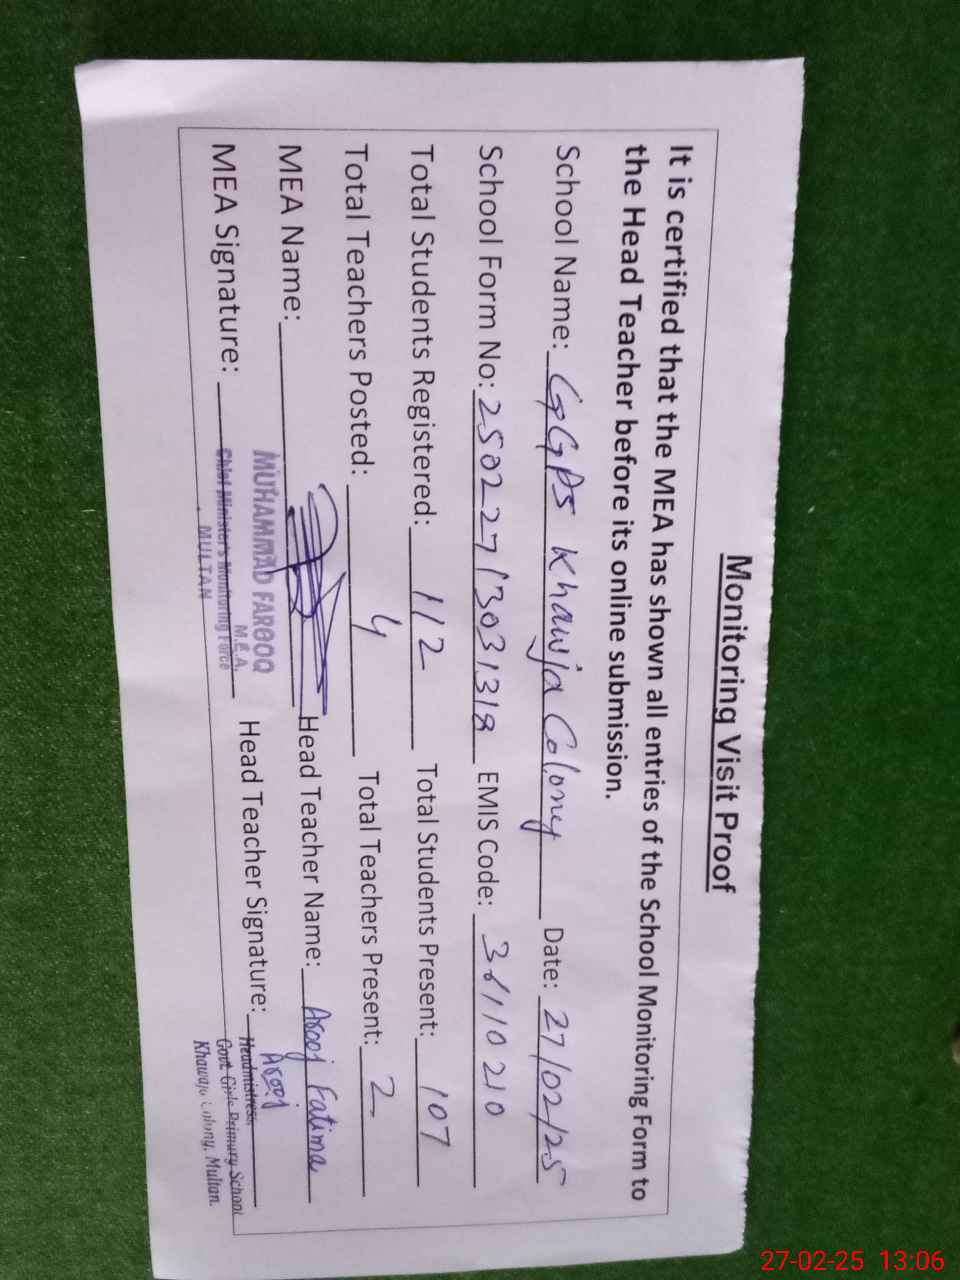 Monitoring Visit Proof
It is certified that the MEA has shown all entries of the School Monitoring Form to
the Head Teacher before its online submission.
School Name: GGPS Khawja Colony Date: 27/02/25
School Form No: 25022713031318 EMIS Code: 36110210
Total Students Registered: 112 Total Students Present: 107
Total Teachers Posted: 4 Total Teachers Present: 2
MEA Name: Head Teacher Name: Arooj Fatima
MEA Signature: Head Teacher Signature: Arooj
MUHAMMAD FAROOQ
M.E.A.
Chief Minister's Monitoring Force
MULTAN
Headmistress
Govt. Girls Primary School
Khawaja Colony, Multan.
27-02-25 13:06